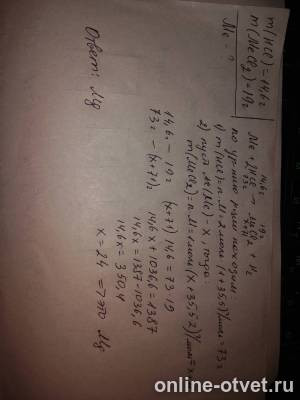 m(HCl) = 14,6г
m(MeCl₂) = 19г
Me - ?
14,6г 19г
Me + 2HCl → MeCl₂ + H₂
73г x+71
по ур-нию р-ции находим
1) m(HCl) = n·M = 2моль · (1+35,5)г/моль = 73г
2) пусть Ar(Me) - x, тогда:
m(MeCl₂) = n·M = 1моль (x+35,5·2)г/моль = x
14,6г - 19г
73г - (x+71)г
(x+71)·14,6 = 73·19
14,6x + 1036,6 = 1387
14,6x = 1387 - 1036,6
14,6x = 350,4
x = 24 => это Mg
Ответ: Mg
online-otvet.ru